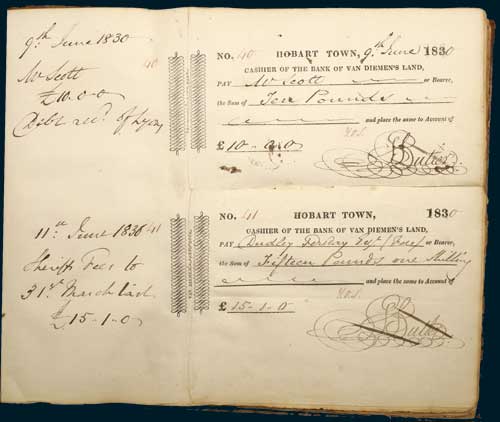 9th June 1830
40
Mr Scott
£10-0-0
Debt recd. of Lyon
NO. 40 HOBART TOWN, 9th June 1830
CASHIER OF THE BANK OF VAN DIEMEN'S LAND,
PAY Mr Scott or Bearer,
the Sum of Ten Pounds
and place the same to Account of
£ 10-0-0
Butler
11th June 1830 41
Sheriffs Fees to
31st March last
£15-1-0
NO. 41 HOBART TOWN, 1830
CASHIER OF THE BANK OF VAN DIEMEN'S LAND,
PAY Dudley Fereday Esqr or Bearer,
the Sum of Fifteen Pounds one Shilling
and place the same to Account of
£ 15-1-0
Butler